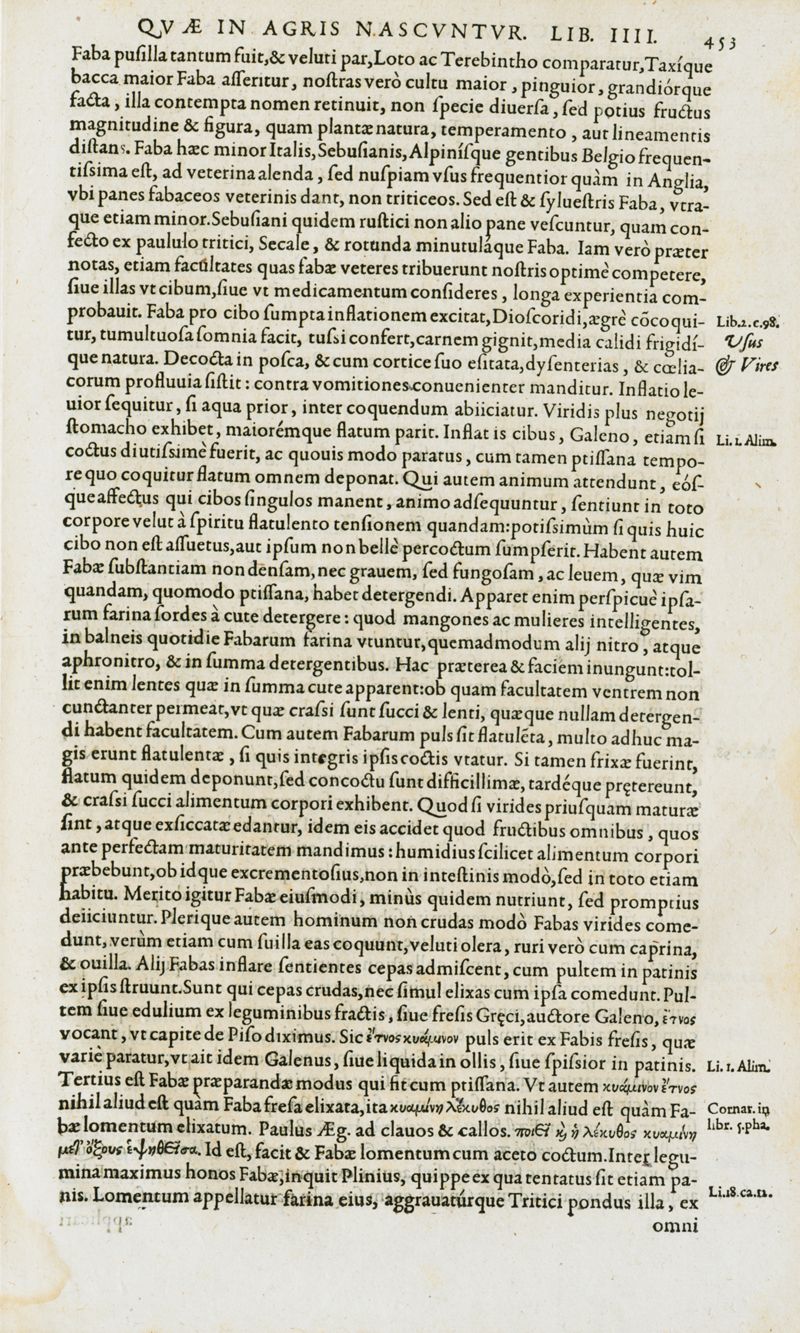 QVÆ IN AGRIS NASCVNTVR. LIB. IIII. 453
Faba puſilla tantum fuit,& veluti par,Loto ac Terebintho comparatur,Taxíque
bacca maior Faba aſſeritur, noſtras verò cultu maior, pinguior, grandiórque
facta, illa contempta nomen retinuit, non ſpecie diuerſa, ſed potius fructus
magnitudine & figura, quam plantæ natura, temperamento, aut lineamentis
diſtans. Faba hæc minor Italis, Sebuſianis, Alpiníſque gentibus Belgio frequen-
tiſsima eſt, ad veterina alenda, ſed nuſpiam vſus frequentior quàm in Anglia,
vbi panes fabaceos veterinis dant, non triticeos. Sed eſt & ſylueſtris Faba, vtra-
que etiam minor. Sebuſiani quidem ruſtici non alio pane veſcuntur, quam con-
fecto ex paululo tritici, Secale, & rotunda minutuláque Faba. Iam verò præter
notas, etiam facultates quas fabæ veteres tribuerunt noſtris optimè competere,
ſiue illas vt cibum, ſiue vt medicamentum conſideres, longa experientia com-
probauit. Faba pro cibo ſumpta inflationem excitat, Dioſcoridi, ægrè cōcoqui- Lib.2.c.98.
tur, tumultuoſa ſomnia facit, tuſsi confert, carnem gignit, media calidi frigidí- Vſus
que natura. Decocta in poſca, & cum cortice ſuo eſitata, dyſenterias, & cœlia- & Vires
corum profluuia ſiſtit: contra vomitiones conuenienter manditur. Inflatio le-
uior ſequitur, ſi aqua prior, inter coquendum abiiciatur. Viridis plus negotij
ſtomacho exhibet, maiorémque flatum parit. Inflat is cibus, Galeno, etiam ſi Li.1. Alim.
coctus diutiſsimè fuerit, ac quouis modo paratus, cum tamen ptiſſana tempo-
re quo coquitur flatum omnem deponat. Qui autem animum attendunt, eóſ-
que affectus qui cibos ſingulos manent, animo adſequuntur, ſentiunt in toto
corpore velut à ſpiritu flatulento tenſionem quandam: potiſsimùm ſi quis huic
cibo non eſt aſſuetus, aut ipſum non bellè percoctum ſumpſerit. Habent autem
Fabæ ſubſtantiam non denſam, nec grauem, ſed fungoſam, ac leuem, quæ vim
quandam, quomodo ptiſſana, habet detergendi. Apparet enim perſpicuè ipſa-
rum farina ſordes à cute detergere: quod mangones ac mulieres intelligentes,
in balneis quotidie Fabarum farina vtuntur, quemadmodum alij nitro, atque
aphronitro, & in ſumma detergentibus. Hac præterea & faciem inungunt: tol-
lit enim lentes quæ in ſumma cute apparent: ob quam facultatem ventrem non
cunctanter permeat, vt quæ craſsi ſunt ſucci & lenti, quæque nullam detergen-
di habent facultatem. Cum autem Fabarum puls ſit flatulēta, multo adhuc ma-
gis erunt flatulentæ, ſi quis integris ipſis coctis vtatur. Si tamen frixæ fuerint,
flatum quidem deponunt, ſed concoctu ſunt difficillimæ, tardéque prętereunt,
& craſsi ſucci alimentum corpori exhibent. Quod ſi virides priuſquam maturæ
ſint, atque exſiccatæ edantur, idem eis accidet quod fructibus omnibus, quos
ante perfectam maturitatem mandimus: humidius ſcilicet alimentum corpori
præbebunt, ob idque excrementoſius, non in inteſtinis modò, ſed in toto etiam
habitu. Merito igitur Fabæ eiuſmodi, minùs quidem nutriunt, ſed promptius
deiiciuntur. Plerique autem hominum non crudas modò Fabas virides come-
dunt, verùm etiam cum ſuilla eas coquunt, veluti olera, ruri verò cum caprina,
& ouilla. Alij Fabas inflare ſentientes cepas admiſcent, cum pultem in patinis
ex ipſis ſtruunt. Sunt qui cepas crudas, nec ſimul elixas cum ipſa comedunt. Pul-
tem ſiue edulium ex leguminibus fractis, ſiue freſis Gręci, auctore Galeno, ἔτνος
vocant, vt capite de Piſo diximus. Sic ἔτνος κυάμινον puls erit ex Fabis freſis, quæ
variè paratur, vt ait idem Galenus, ſiue liquida in ollis, ſiue ſpiſsior in patinis. Li.1. Alim.
Tertius eſt Fabæ præparandæ modus qui fit cum ptiſſana. Vt autem κυάμινον ἔτνος
nihil aliud eſt quàm Faba freſa elixata, ita κυαμίνη λέκυθος nihil aliud eſt quàm Fa- Cornar. in
bæ lomentum elixatum. Paulus Æg. ad clauos & callos. ποιεῖ ϗ ἡ λέκυθος κυαμίνη libr. 5. pha.
μετ' ὄξους ἑψηθεῖσα. Id eſt, facit & Fabæ lomentum cum aceto coctum. Inter legu-
mina maximus honos Fabæ; inquit Plinius, quippe ex qua tentatus ſit etiam pa-
nis. Lomentum appellatur farina eius, aggrauatúrque Tritici pondus illa, ex Li.18.ca.12.
omni